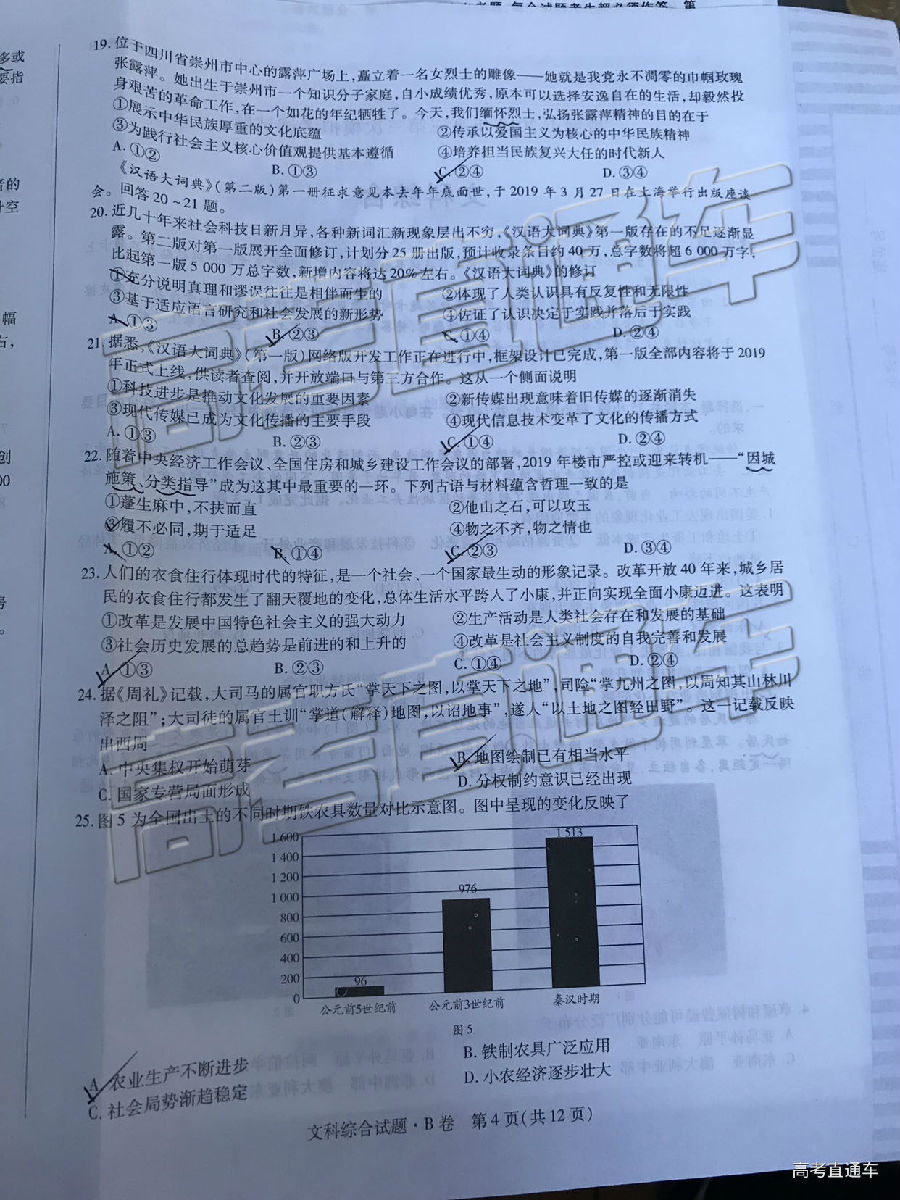 19. 位于四川省崇州市中心的露萍广场上,矗立着一名女烈士的雕像——她就是我党永不凋零的巾帼玫瑰
张露萍。她出生于崇州市一个知识分子家庭,自小成绩优秀,原本可以选择安逸自在的生活,却毅然投
身艰苦的革命工作,在一个如花的年纪牺牲了。今天,我们缅怀烈士,弘扬张露萍精神的目的在于
①展示中华民族厚重的文化底蕴 ②传承以爱国主义为核心的中华民族精神
③为践行社会主义核心价值观提供基本遵循 ④培养担当民族复兴大任的时代新人
A. ①② B. ①③ C. ②④ D. ③④
《汉语大词典》(第二版)第一册征求意见本去年年底面世,于 2019 年 3 月 27 日在上海举行出版座谈
会。回答 20~21 题。
20. 近几十年来社会科技日新月异,各种新词汇新现象层出不穷,《汉语大词典》第一版存在的不足逐渐显
露。第二版对第一版展开全面修订,计划分 25 册出版,预计收录条目约 40 万,总字数将超 6 000 万字,
比起第一版 5 000 万总字数,新增内容将达 20%左右。《汉语大词典》的修订
①充分说明真理和谬误往往是相伴而生的 ②体现了人类认识具有反复性和无限性
③基于适应语言研究和社会发展的新形势 ④佐证了认识决定于实践并落后于实践
A. ①③ B. ②③ C. ①④ D. ②④
21. 据悉,《汉语大词典》(第一版)网络版开发工作正在进行中,框架设计已完成,第一版全部内容将于 2019
年正式上线,供读者查阅,并开放端口与第三方合作。这从一个侧面说明
①科技进步是推动文化发展的重要因素 ②新传媒出现意味着旧传媒的逐渐消失
③现代传媒已成为文化传播的主要手段 ④现代信息技术变革了文化的传播方式
A. ①③ B. ②③ C. ①④ D. ②④
22. 随着中央经济工作会议、全国住房和城乡建设工作会议的部署,2019 年楼市严控或迎来转机——“因城
施策、分类指导”成为这其中最重要的一环。下列古语与材料蕴含哲理一致的是
①蓬生麻中,不扶而直 ②他山之石,可以攻玉
③履不必同,期于适足 ④物之不齐,物之情也
A. ①② B. ①④ C. ②③ D. ③④
23. 人们的衣食住行体现时代的特征,是一个社会、一个国家最生动的形象记录。改革开放 40 年来,城乡居
民的衣食住行都发生了翻天覆地的变化,总体生活水平跨入了小康,并正向实现全面小康迈进。这表明
①改革是发展中国特色社会主义的强大动力 ②生产活动是人类社会存在和发展的基础
③社会历史发展的总趋势是前进的和上升的 ④改革是社会主义制度的自我完善和发展
A. ①③ B. ②③ C. ①④ D. ②④
24. 据《周礼》记载,大司马的属官职方氏“掌天下之图,以掌天下之地”,司险“掌九州之图,以周知其山林川
泽之阻”;大司徒的属官土训“掌道(解释)地图,以诏地事”,遂人“以土地之图经田野”。这一记载反映
出西周
A. 中央集权开始萌芽 B. 地图绘制已有相当水平
C. 国家专营局面形成 D. 分权制约意识已经出现
25. 图 5 为全国出土的不同时期铁农具数量对比示意图。图中呈现的变化反映了
1 600
1 400
1 200
1 000
800
600
400
200
0
96
976
1 513
公元前5世纪前 公元前3世纪前 秦汉时期
图 5
A. 农业生产不断进步 B. 铁制农具广泛应用
C. 社会局势渐趋稳定 D. 小农经济逐步壮大
文科综合试题·B 卷 第 4 页(共 12 页)
高考直通车
高考直通车
高考直通车